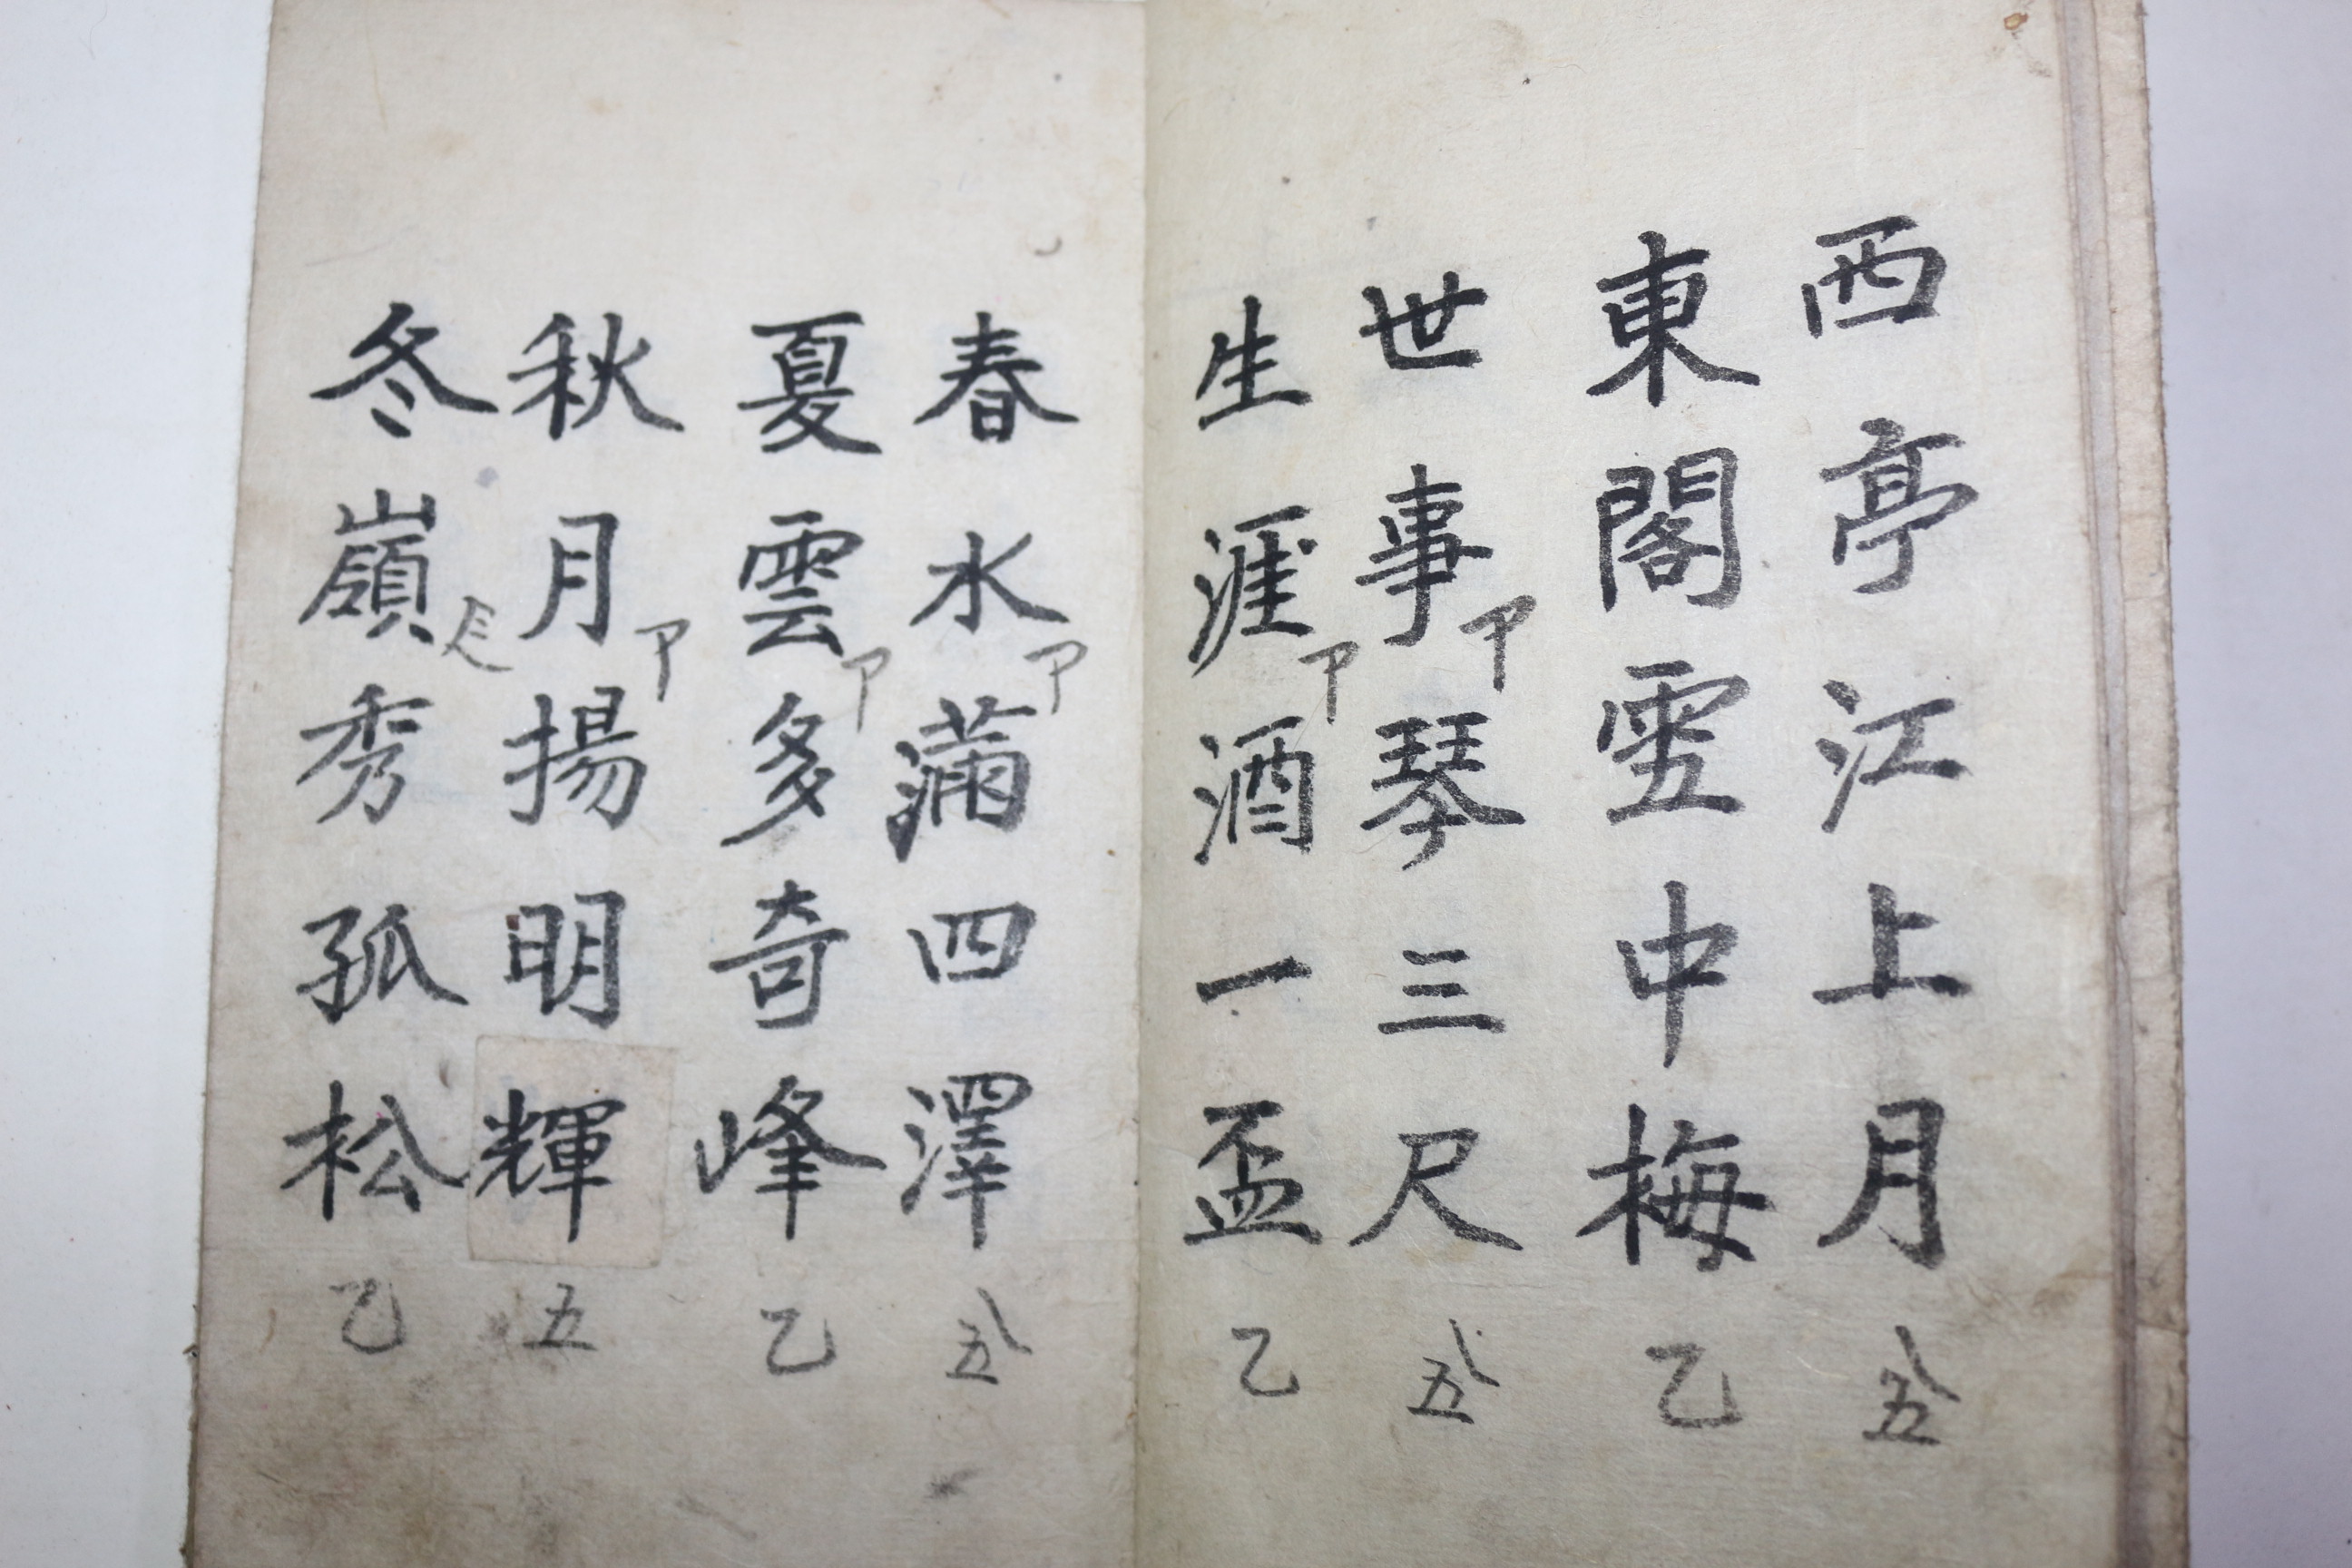 西亭江上月乀五
東閣雪中梅乙
世事卩琴三尺乀五
生涯卩酒一盃乙
春水卩滿四澤乀五
夏雲卩多奇峰乙
秋月卩揚明輝五
冬嶺秀孤松乙